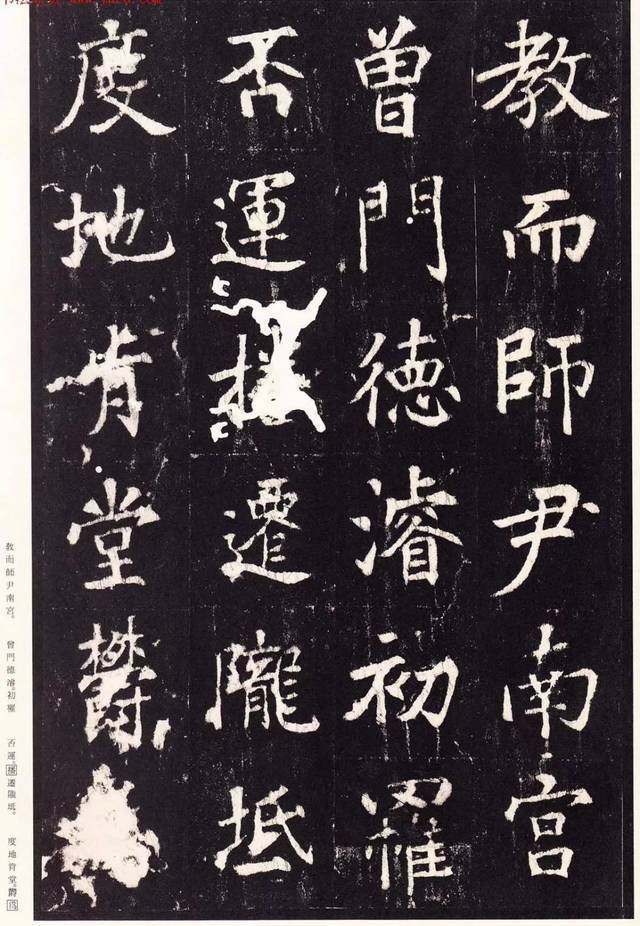 教而師尹南宮
曾門德濬初罹
否運遷隴坻
度地肯堂欝
教而師尹南宮。
曾門德濬。初罹
否運。遷隴坻。
度地肯堂。